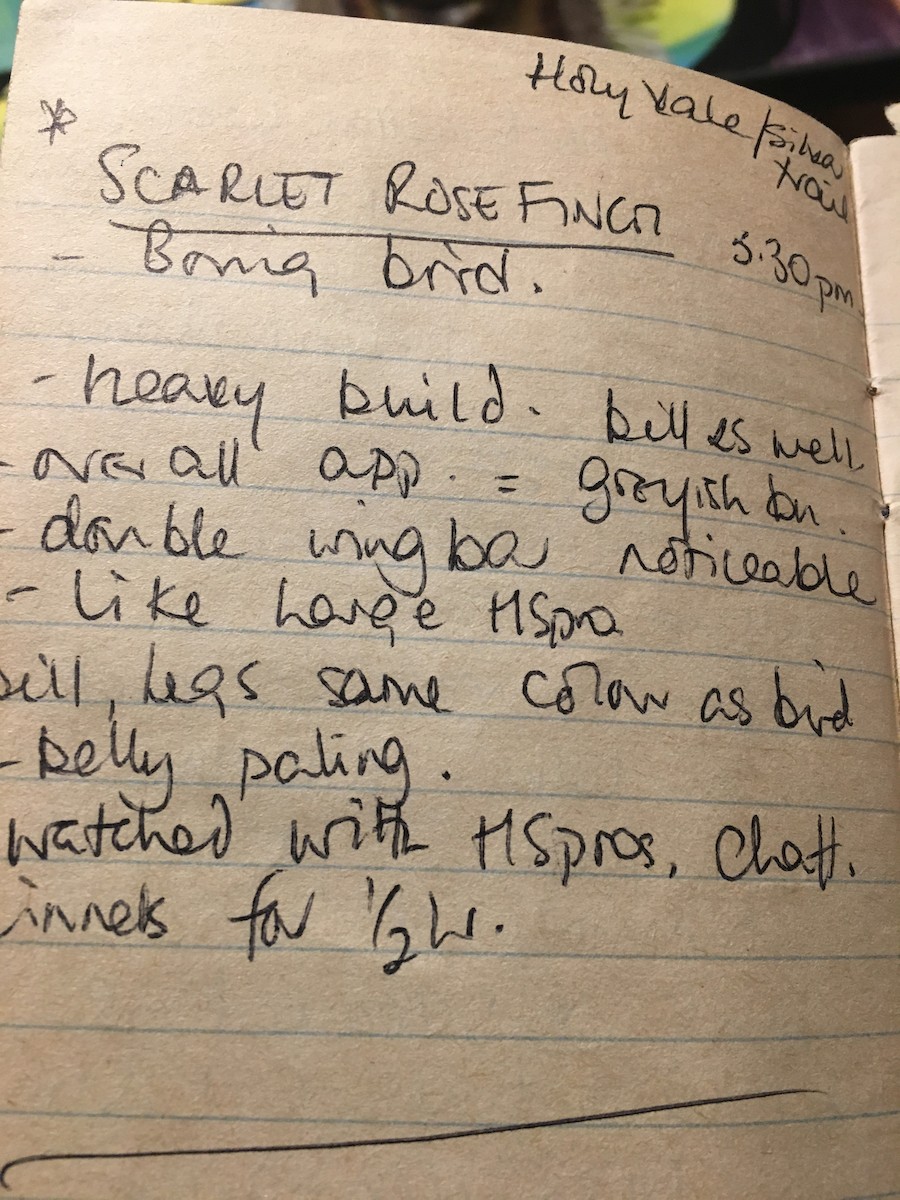 Holy Vale / Silva
trail
*
SCARLET ROSEFINCH
5.30pm
- Boring bird.
- heavy build. bill as well
- overall app. = greyish bn.
- double wing bar noticeable
- Like large HSpro
bill, legs same colour as bird
- Belly paling.
watched with HSpros, Chaff.
innets for 1/2 hr.